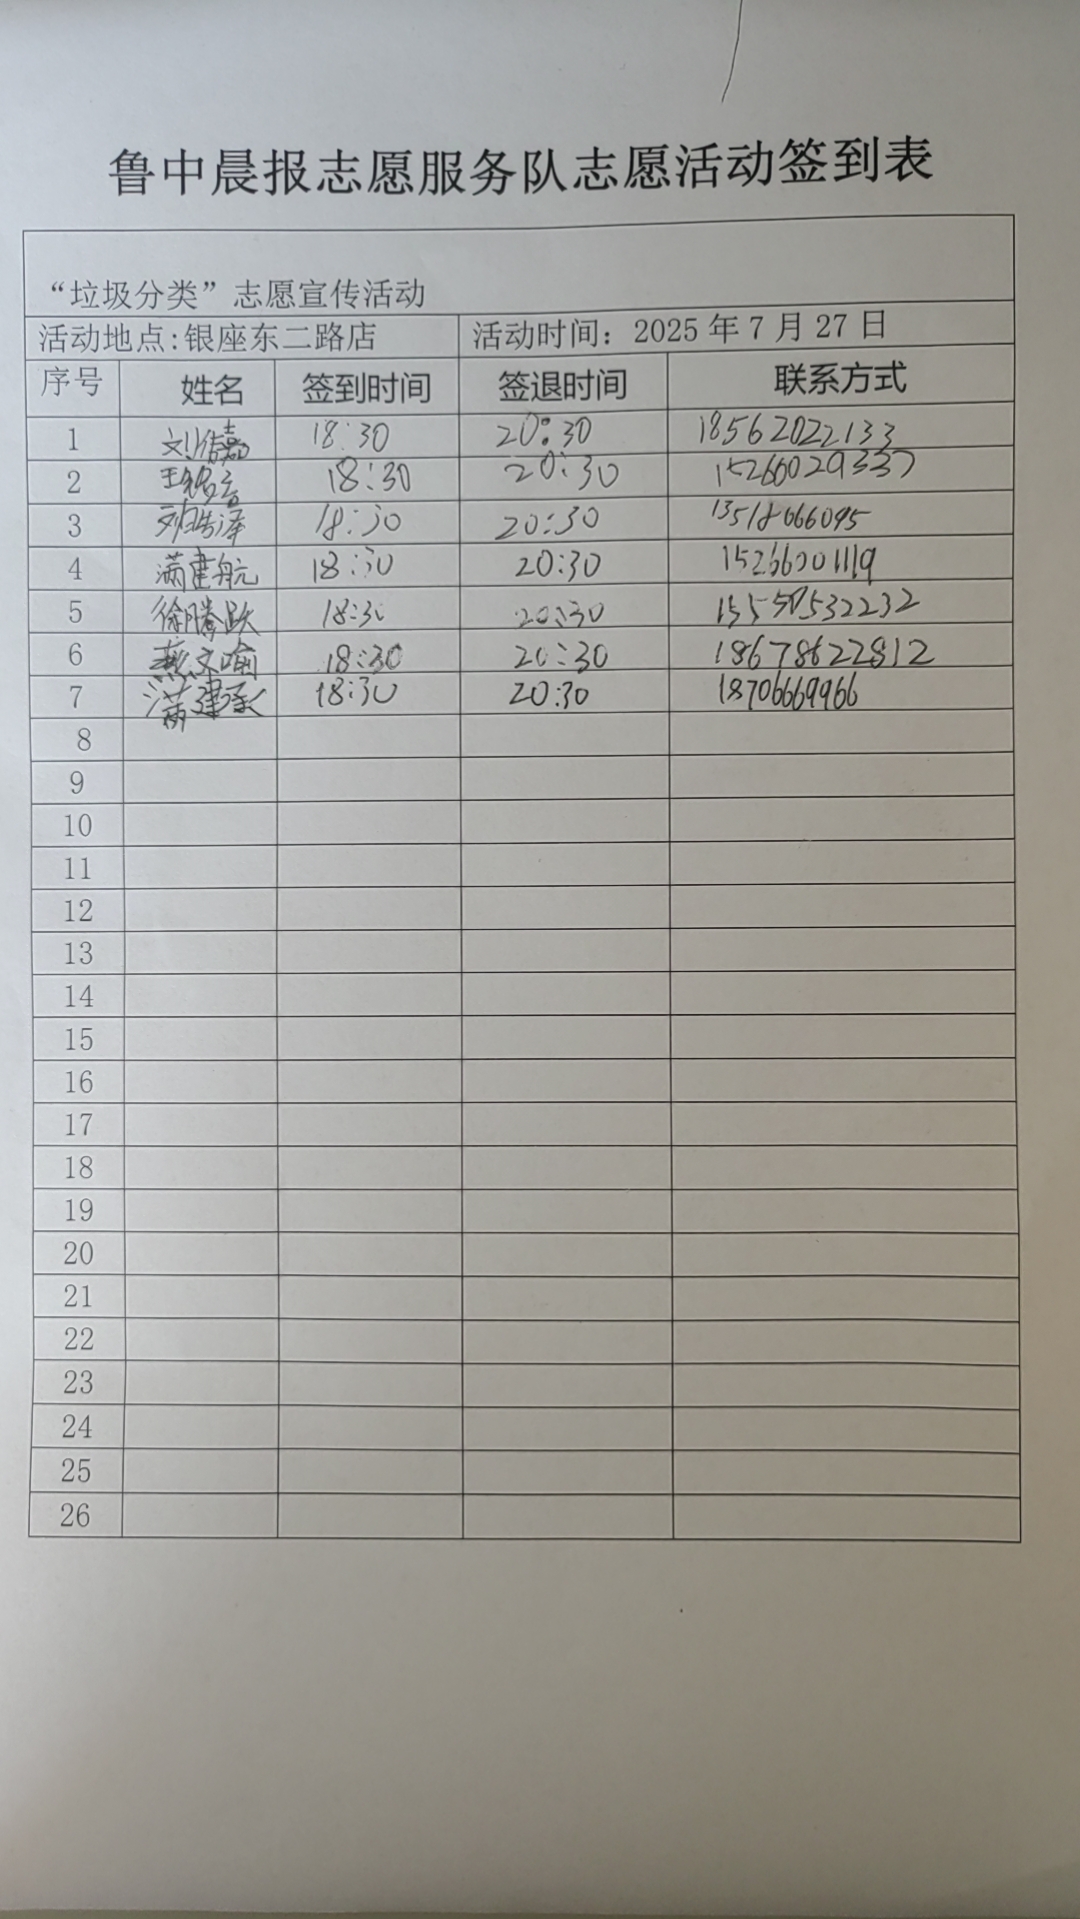 鲁中晨报志愿服务队志愿活动签到表
“垃圾分类”志愿宣传活动
活动地点:银座东二路店 活动时间：2025年7月27日
序号 姓名 签到时间 签退时间 联系方式
1 18:30 20:30 18562022133
2 18:30 20:30 15266029337
3 刘浩泽 18:30 20:30 13518666095
4 满建航 18:30 20:30 15266001119
5 徐腾跃 18:30 20:30 15550532232
6 燕文喻 18:30 20:30 18678622812
7 满建承 18:30 20:30 18706669966
8
9
10
11
12
13
14
15
16
17
18
19
20
21
22
23
24
25
26